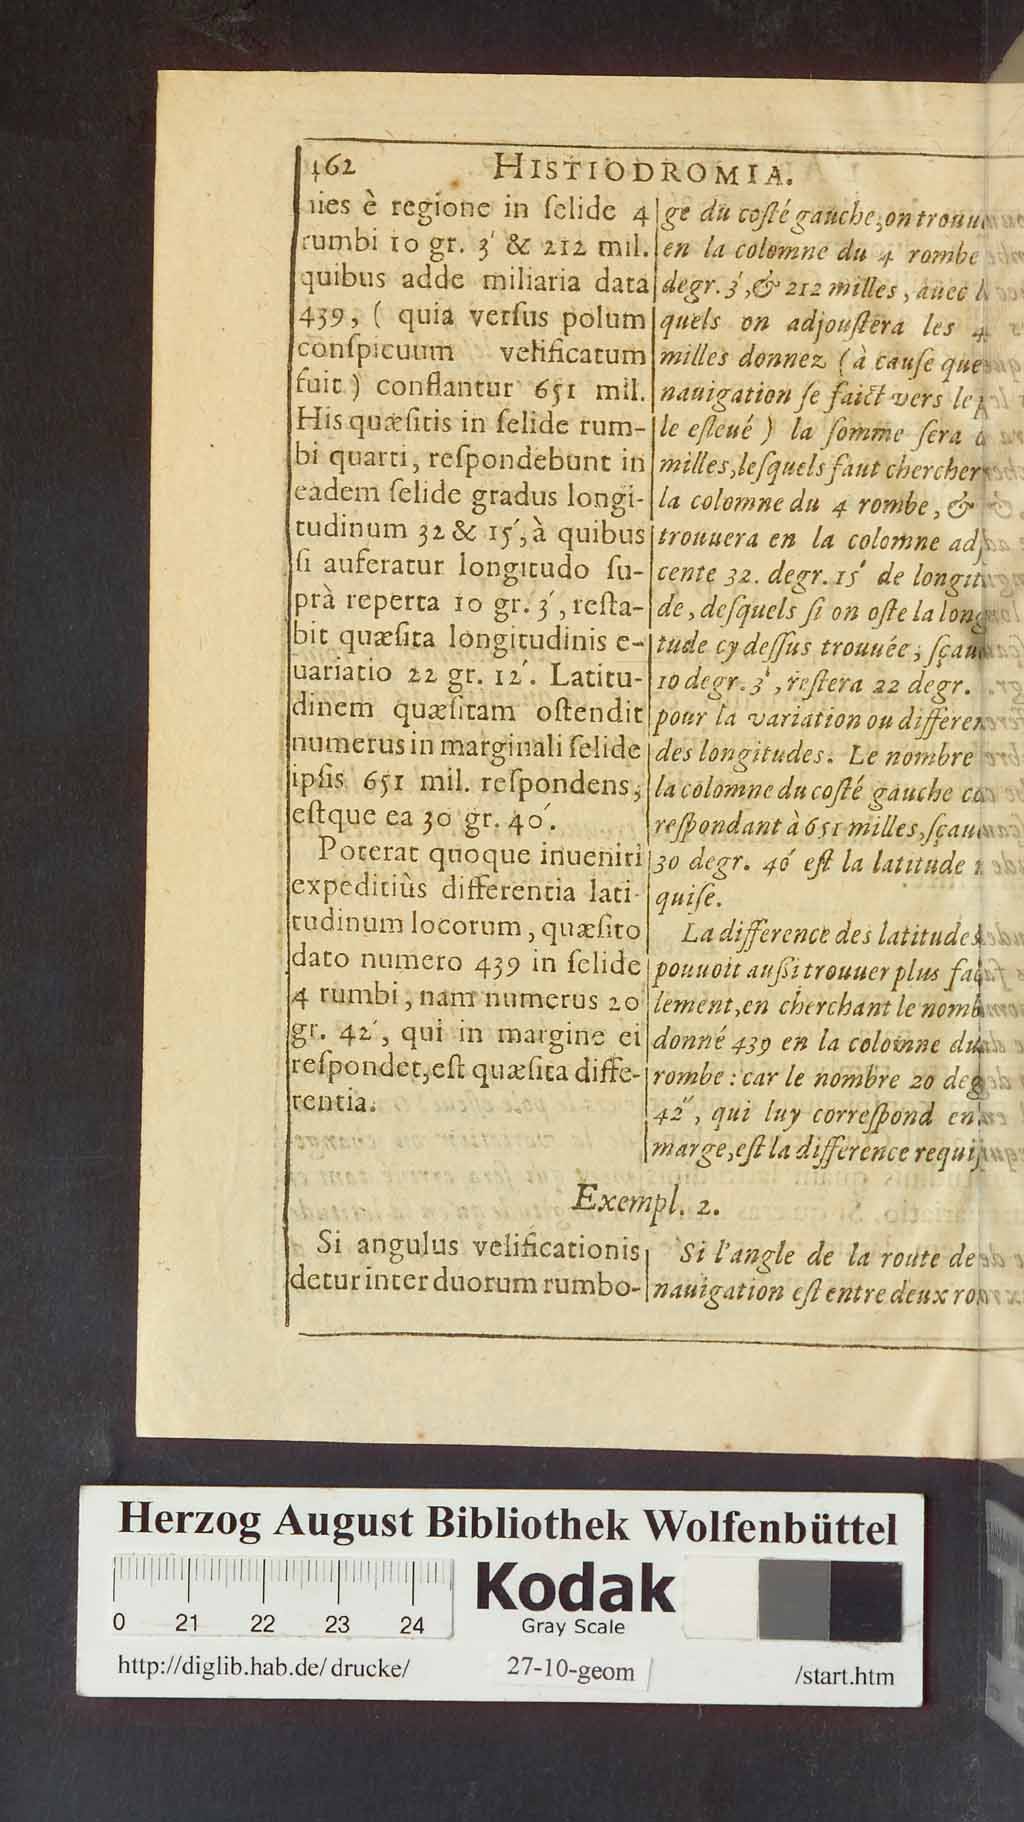 462 HISTIODROMIA.
nes è regione in ſelide 4
rumbi 10 gr. 3′ & 212 mil.
quibus adde miliaria data
439, ( quia verſus polum
conſpicuum velificatum
fuit ) conflantur 651 mil.
His quæſitis in ſelide rum-
bi quarti, reſpondebunt in
eadem ſelide gradus longi-
tudinum 32 & 15′, à quibus
ſi auferatur longitudo ſu-
prà reperta 10 gr. 3′, reſta-
bit quæſita longitudinis e-
uariatio 22 gr. 12′. Latitu-
dinem quæſitam oſtendit
numerus in marginali ſelide
ipſis 651 mil. reſpondens,
eſtque ea 30 gr. 40′.
Poterat quoque inueniri
expeditiùs differentia lati-
tudinum locorum, quæſito
dato numero 439 in ſelide
4 rumbi, nam numerus 20
gr. 42′, qui in margine ei
reſpondet, eſt quæſita diffe-
rentia.
ge du coſté gauche, on trouu
en la colomne du 4 rombe
degr. 3′, & 212 milles, auec
quels on adjouſtera les 4
milles donnez (à cauſe que
nauigation ſe faict vers le
le eſleué ) la ſomme ſera
milles, leſquels faut chercher
la colomne du 4 rombe, &
trouuera en la colomne ad
cente 32. degr. 15′ de longit
de, deſquels ſi on oſte la long
tude cy deſſus trouuée, ſçau
10 degr. 3′, reſtera 22 degr.
pour la variation ou differen
des longitudes. Le nombre
la colomne du coſté gauche co
reſpondant à 651 milles, ſçau
30 degr. 40′ eſt la latitude
quiſe.
La difference des latitudes
pouuoit auſsi trouuer plus fa
lement, en cherchant le nomb
donné 439 en la colomne du
rombe : car le nombre 20 deg
42″, qui luy correſpond en
marge, eſt la difference requi
Exempl. 2.
Si angulus velificationis
detur inter duorum rumbo-
Si l'angle de la route de
nauigation eſt entre deux ro
Herzog August Bibliothek Wolfenbüttel
0 21 22 23 24
Kodak
Gray Scale
http://diglib.hab.de/drucke/ 27-10-geom /start.htm